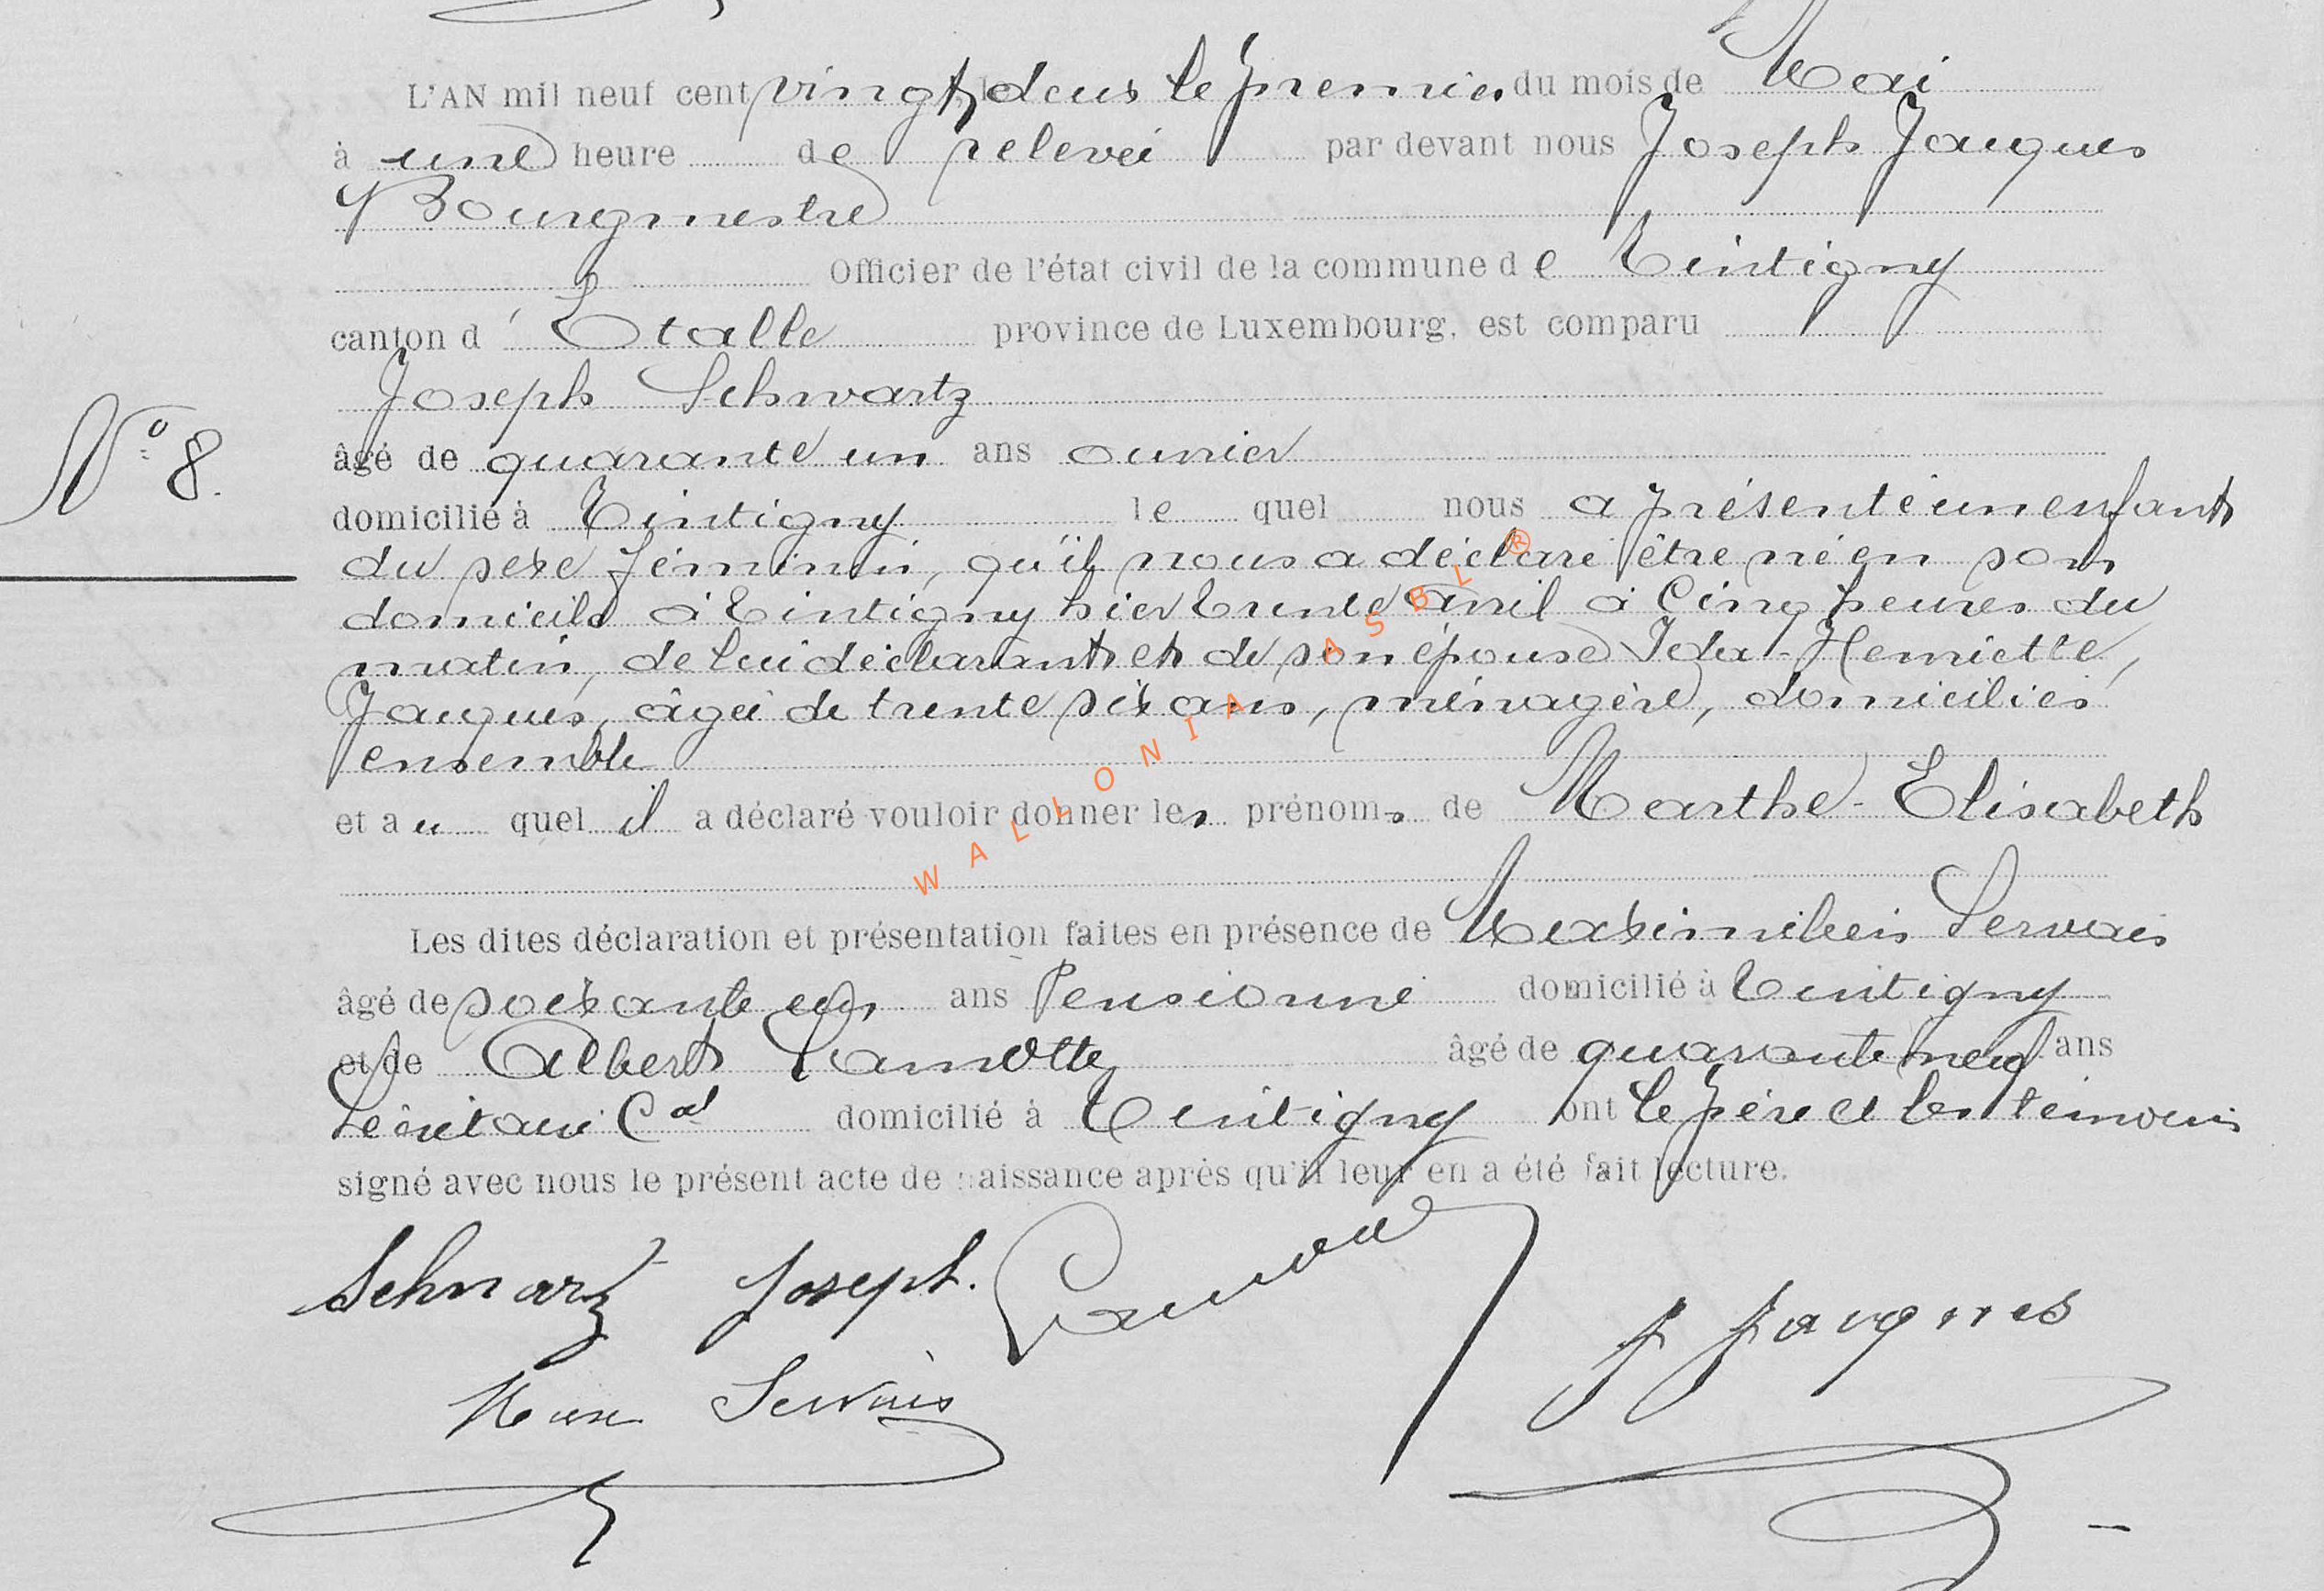 L'AN mil neuf cent vingt deux le premier du mois de Mai
à une heure de relevée par devant nous Joseph Jacques
Bourgmestre
Officier de l'état civil de la commune de Tintigny
canton d'Etalle province de Luxembourg, est comparu
Joseph Schwartz
âgé de quarante un ans ouvrier
N° 8.
domicilié à Tintigny lequel nous a présenté un enfant
du sexe féminin, qu'il nous a déclaré être né en son
domicile à Tintigny hier trente avril à Cinq heures du
matin, de lui déclarant et de son épouse Ida-Henriette,
Jacques, âgée de trente six ans, ménagère, domiciliés
ensemble
et au quel il a déclaré vouloir donner les prénoms de Marthe-Elisabeth
Les dites déclaration et présentation faites en présence de Maximilien Servais
âgé de soixante un ans Pensionné domicilié à Tintigny
et de Albert Lamotte âgé de quarante neuf ans
Secrétaire Cal domicilié à Tintigny ont le père et les témoins
signé avec nous le présent acte de naissance après qu'il leur en a été fait lecture.
Schwarz Joseph.
J Jacques
Max Servais
WALLONIA ASBL ®